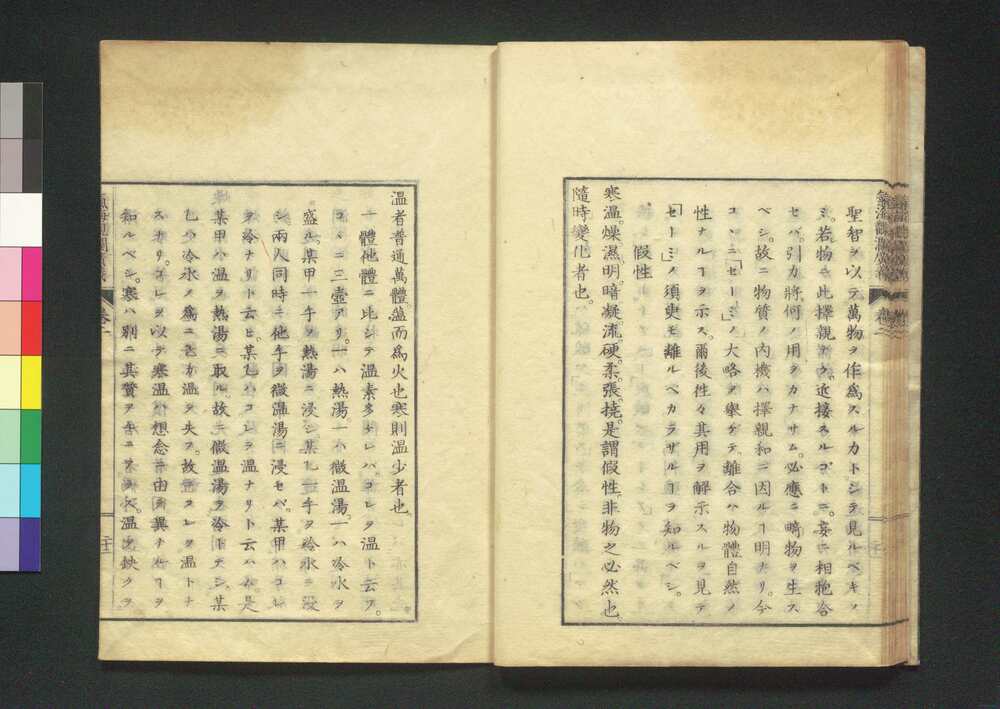 聖智ヲ以テ萬物ヲ作爲スルカトシテ見ルベキノ
ミ。若物ニ此擇親ナク。近接スルゴトニ。妄ニ相抱合
セバ。引力將何ノ用ヲカナサム。必應ニ畸物ヲ生ス
ベシ。故ニ物質ノ内機ハ擇親和ニ因ルヿ明ナリ。今
コヽニ「セーミ」ノ大略ヲ擧ゲテ、離合ハ物體自然ノ
性ナルヿヲ示ス。爾後徃々其用ヲ解示スルヲ見テ
「セーミ」ノ須臾モ離ルベカラザルヿヲ知ルベシ。
假性
寒温。燥濕。明暗。凝流。硬柔。張撓。是謂假性。非物之必然也。
隨時變化者也。
氣海觀瀾廣義 卷一
温者普通萬體。蘊而爲火也。寒則温少者也。
一體他體ニ比シテ温素多ケレバ。コレヲ温ト云フ。
コヽニ三壺アリ。一ハ熱湯。一ハ微温湯。一ハ冷水ヲ
盛ル。某甲一手ヲ熱湯ニ浸シ。某乙一手ヲ冷水ニ浸
シ。兩人同時ニ他手ヲ微温湯ニ浸セバ。某甲ハコレ
ヲ冷ナリト云ヒ。某乙ハコレヲ温ナリト云ハム。是
某甲ハ温ヲ熱湯ニ取ル。故ニ微温湯ヲ冷トナシ。某
乙ハ冷水ノ爲ニ己ガ温ヲ失フ。故ニコレヲ温トナ
スナリ。コレヲ以テ寒温ハ想念ニ由テ異ナルヿヲ
知ルベシ。寒ハ別ニ其質アルニアラズ。温ヲ缺クヲ